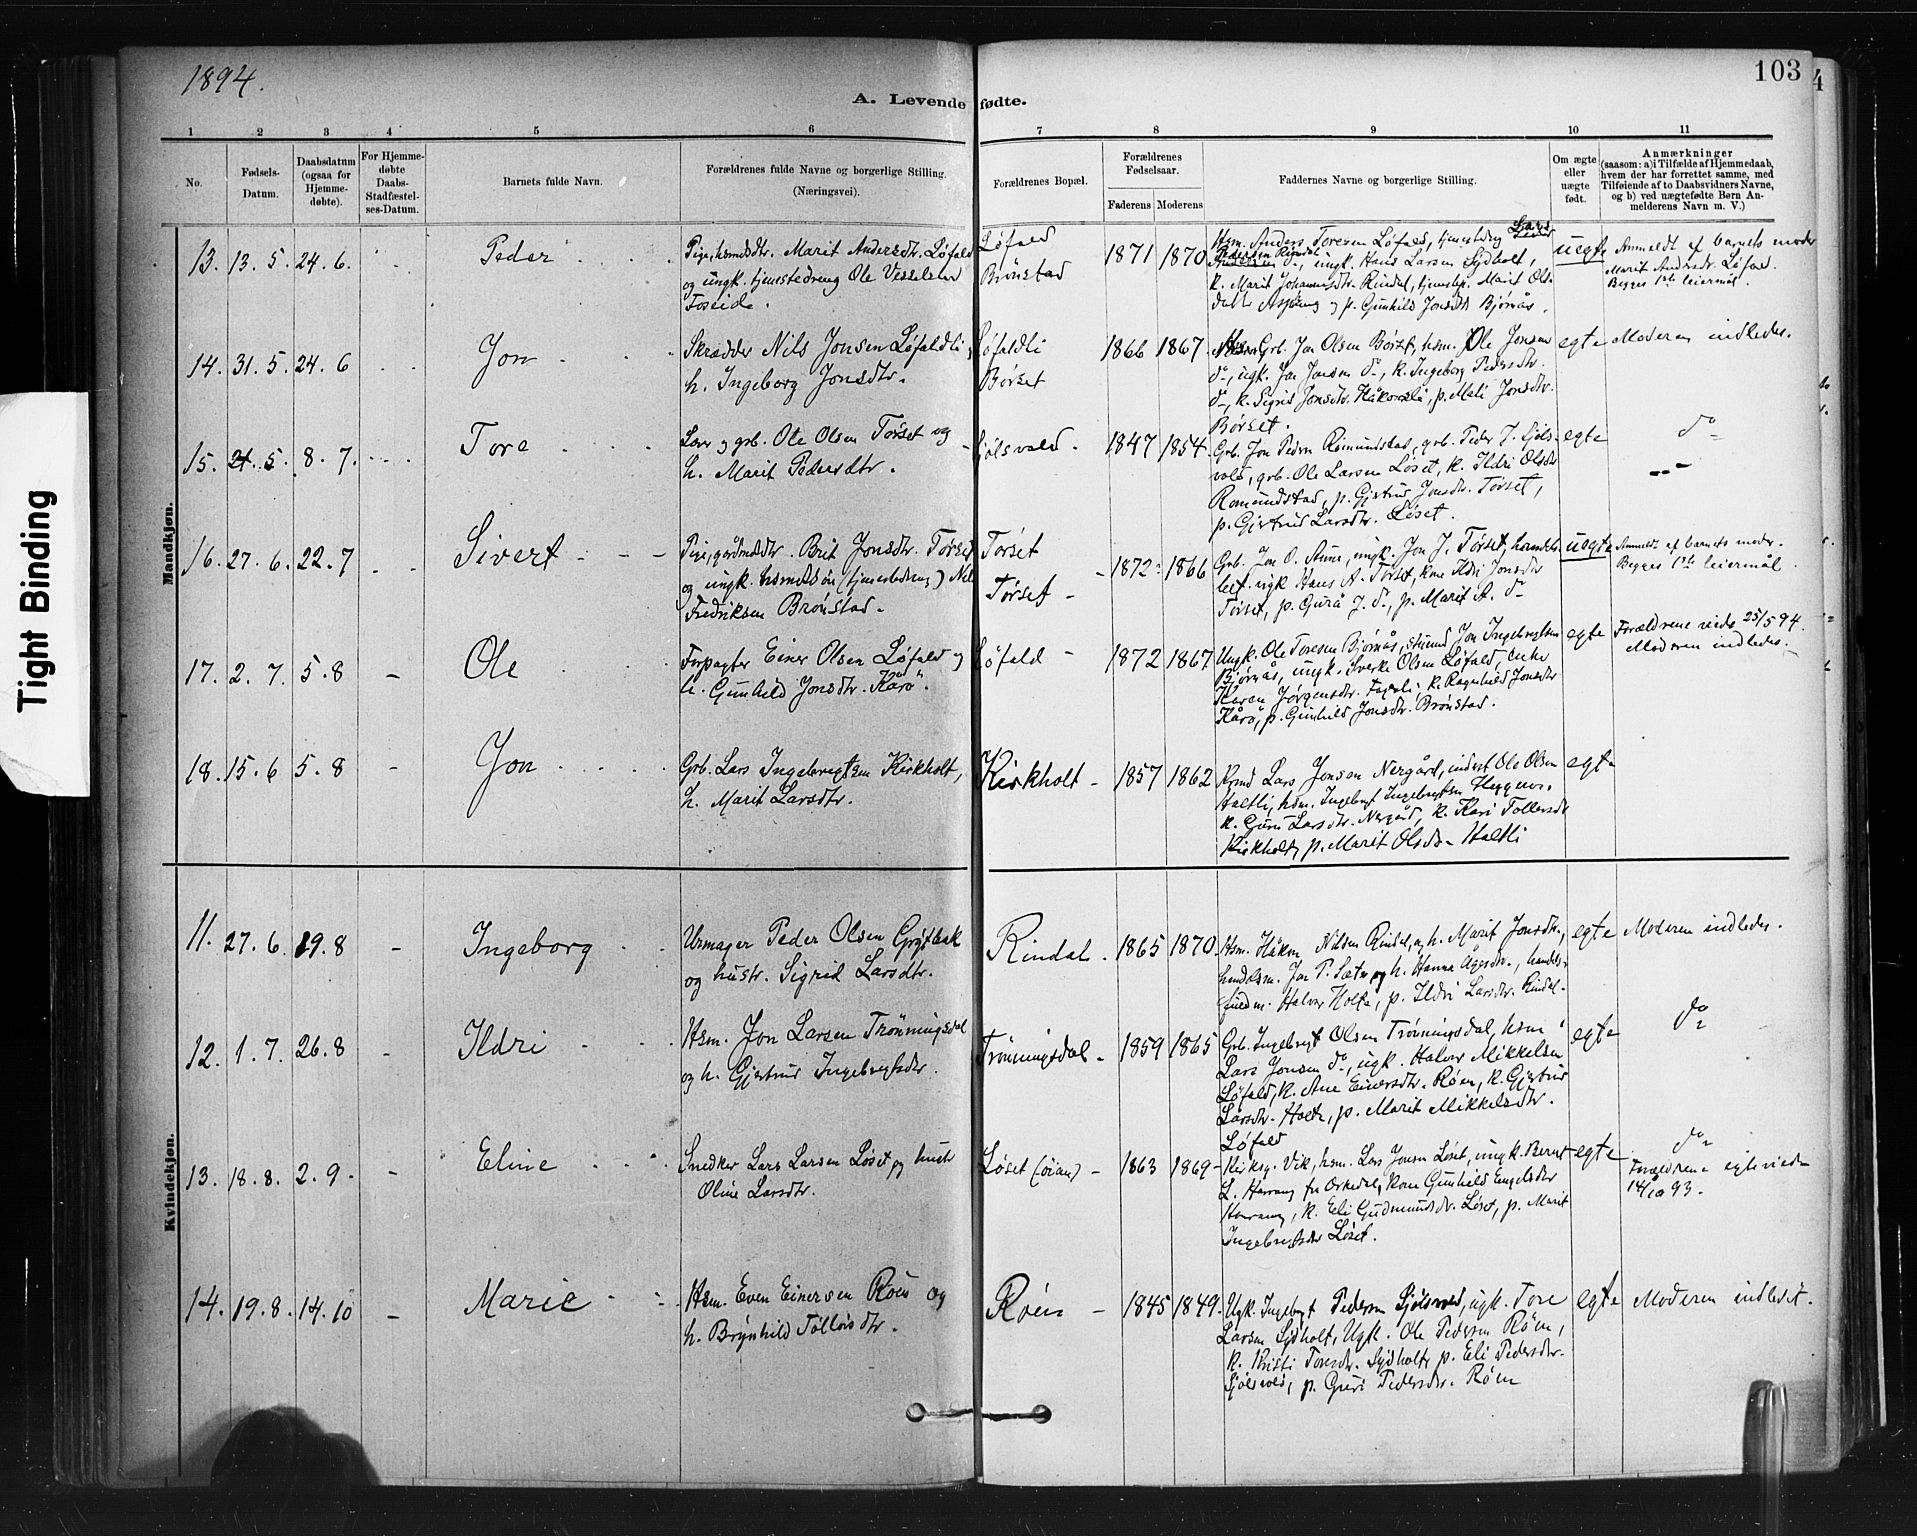 1894.
103
A. Levende fødte.
1 2 3 4 5 6 7 8 9 10 11
No.
Fødsels-
Datum.
Daabsdatum
(ogsaa for
Hjemme-
døbte).
For Hjemme-
døbte
Daabs-
Stadfæstel-
ses-Datum.
Barnets fulde Navn.
Forældrenes fulde Navne og borgerlige Stilling.
(Næringsvei).
Forældrenes Bopæl.
Forældrenes
Fødselsaar.
Faderens Moderens
Faddernes Navne og borgerlige Stilling.
Om ægte
eller
uægte
født.
Anmærkninger
(saasom: a) i Tilfælde af Hjemmedaab,
hvem der har forrettet samme, med
Tilføiende af to Daabsvidners Navne,
og b) ved uægtefødte Børn An-
melderens Navn m. V.)
Tight Binding
Mandkjøn.
13. 13. 5. 24. 6. Peder
Pige, hsmdsdtr. Marit Andersdtr. Løfald
og ungk. tjenestedreng Ole
Foseide.
Løfald
Brønstad
1871 1870
Hsm. Anders Toresen Løfald, tjenestedreng Lars
Pedersen Rindal
ungk. Hans Larsen Sydholt,
k. Marit Johannisdtr. Rindal, tjenestep. Marit Ols-
datter og p. Gunhild Jonsdtr Bjørnås.
uegte
Anmeldt af barnets moder
Marit Andersdr. Løfald.
Begges 1ste leiermål.
14. 31. 5. 24. 6 Jon
Skrædder Nils Jonsen Løfaldli,
h. Ingeborg Jonsdtr.
Løfaldli
Børset
1866 1867
Grb. Jon Olsen Børset, hsm. Ole Jonsen
do, ugk. Jon Jonsen do, k. Ingeborg Pedersdtr.
do, k. Sigrid Jonsdtr. Håkonsli, p. Mali Jonsdtr.
Børset.
egte Moderen indledes.
15. 21. 5. 8. 7. Tore
og grb. Ole Olsen Tørset og
h. Marit Pedersdtr.
Sjølsvold.
1847 1854.
Grb. Jon Peders Romundstad, grb. Peder J. Sjøls-
vold, grb. Ole Larsen Løset, k. Ildri Olsdtr
Romundstad, p. Gjertrud Jonsdtr. Tørset,
p. Gjertrud Larsdtr. Løset.
egte do
16. 27. 6. 22. 7 Sivert
Pige, gårdmdsdtr. Brit Jonsdtr. Tørset
og ungk. husmdssøn (tjenestedreng) Nils
Fredriksen Brønstad.
Tørset
Tørset
1872 1866
Grb. Jon O. Aune, ungk. Jon J. Tørset, handels-
betj. ugk Hans A. Tørset, kone Ildri Jonsdtr
Tørset, p. Gurå J. do, p. Marit A. do
uegte
Anmeldt af barnets moder.
Begges 1ste leiermål.
17. 2. 7. 5. 8 Ole
Forpagter Einer Olsen Løfald og
h. Gunhild Jonsdtr. Kårø.
Løfald
1872 1867
Ungk. Ole Toresen Bjørnås, Jon Ingebrigtsen
Bjørnås, ungk. Sverke Olsen Løfald, enke
Karen Jørgensdtr. k. Ragnhild Jonsdtr
Kårø, p. Gunhild Jonsdtr. Brønstad.
egte
Forældrene viede 25/5 94.
Moderen indledes.
18. 15. 6 5. 8 Jon
Grb. Lars Ingebrigtsen Kirkholt,
h. Marit Larsdtr.
Kirkholt
1857 1862
Lars Jonsen Nergård, inderst Ole Olsen
Haltli, hsm. Ingebrigt Ingebrigtsen Heggem.
k. Guru Larsdtr. Nergård, k. Kari Tollersdtr
Kirkholt, p. Marit Olsdtr Haltli
egte
Kvindekjøn.
11. 27. 6. 19. 8 Ingeborg
Urmager Peder Olsen Grytbak
og hustr. Sigrid Larsdtr.
Rindal
1865 1870
Hsm. Håkon Nilsen Rindal, og h. Marit Jonsdtr.,
handelsm. Jon P. Sæter og h. Hanna Ågesdtr., handels-
fuldm. Halvor Holte, p. Ildri Larsdtr. Rindal
egte Moderen indledes.
12. 1. 7. 26. 8 Ildri
Hsm. Jon Larsen Trønningsdal
og h. Gjertrud Ingebrigtsdtr.
Trønningsdal
1859 1865
Grb. Ingebrigt Olsen Trønningsdal, hsm
Lars Jonsen do, ugk. Halvor Mikkelsen
Løfald, k. Ane Einersdtr. Røen, k. Gjertrud
Larsdtr. Holte, p. Marit Mikkelsdtr.
Løfald
egte do
13. 18. 8. 2. 9 Eline
Snedker Lars Larsen Løset og hustr
Oline Larsdtr.
Løset (øian)
1863 1869
Kirksg. Vik, hsm. Lars Jonsen Løset, ungk. Bernt
L. Harrang fra Orkedal, kone Gunhild Engelsdtr
Harrang, k. Eli Gudmundsdtr. Løset, p. Marit
Ingebrigtsdtr Løset.
egte do
Forældrene egteviede
14/10 93.
14. 19. 8. 14. 10 Marie
Hsm. Even Einersen Røen og
h. Brynhild Tølløvsdtr.
Røen
1845 1849
Ugk. Ingebrigt Pedersen Sjølsvold, ugk. Tore
Larsen Sydholt, Ugk. Ole Pedersen Røen,
k. Kristi Toresdtr. Sydholt, p. Eli Pedersdtr.
Sjølsvold, p. Guri Pedersdtr. Røen
egte Moderen indledet.